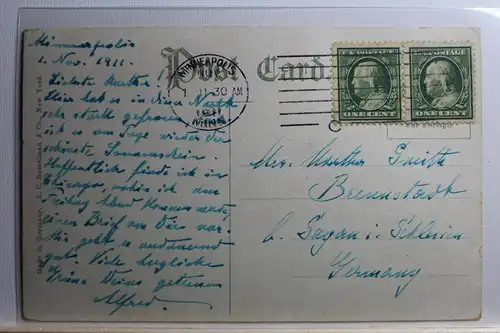 Minneapolis
1. Nov. 1911.
Post Card.
MINNEAPOLIS
NOV
1 11 30 AM
1911
MINN.
U.S. POSTAGE
ONE CENT
U.S. POSTAGE
ONE CENT
Liebste Martha!
Hier hat es in dieser Nacht
sehr stark gefroren,
ist es am Tage wieder der
schönste Sonnenschein.
Hoffentlich finde ich in
Chicago, wohin ich am
Freitag Abend kommen werde,
einen Brief von Dir vor.
Mir geht es andauernd
gut. Viele herzliche
Deines getreuen
Alfred.
Mrs. Martha
Brennstadt
b. Sagan i. Schlesien
Germany
Made in Germany. A. C. & Co., New York